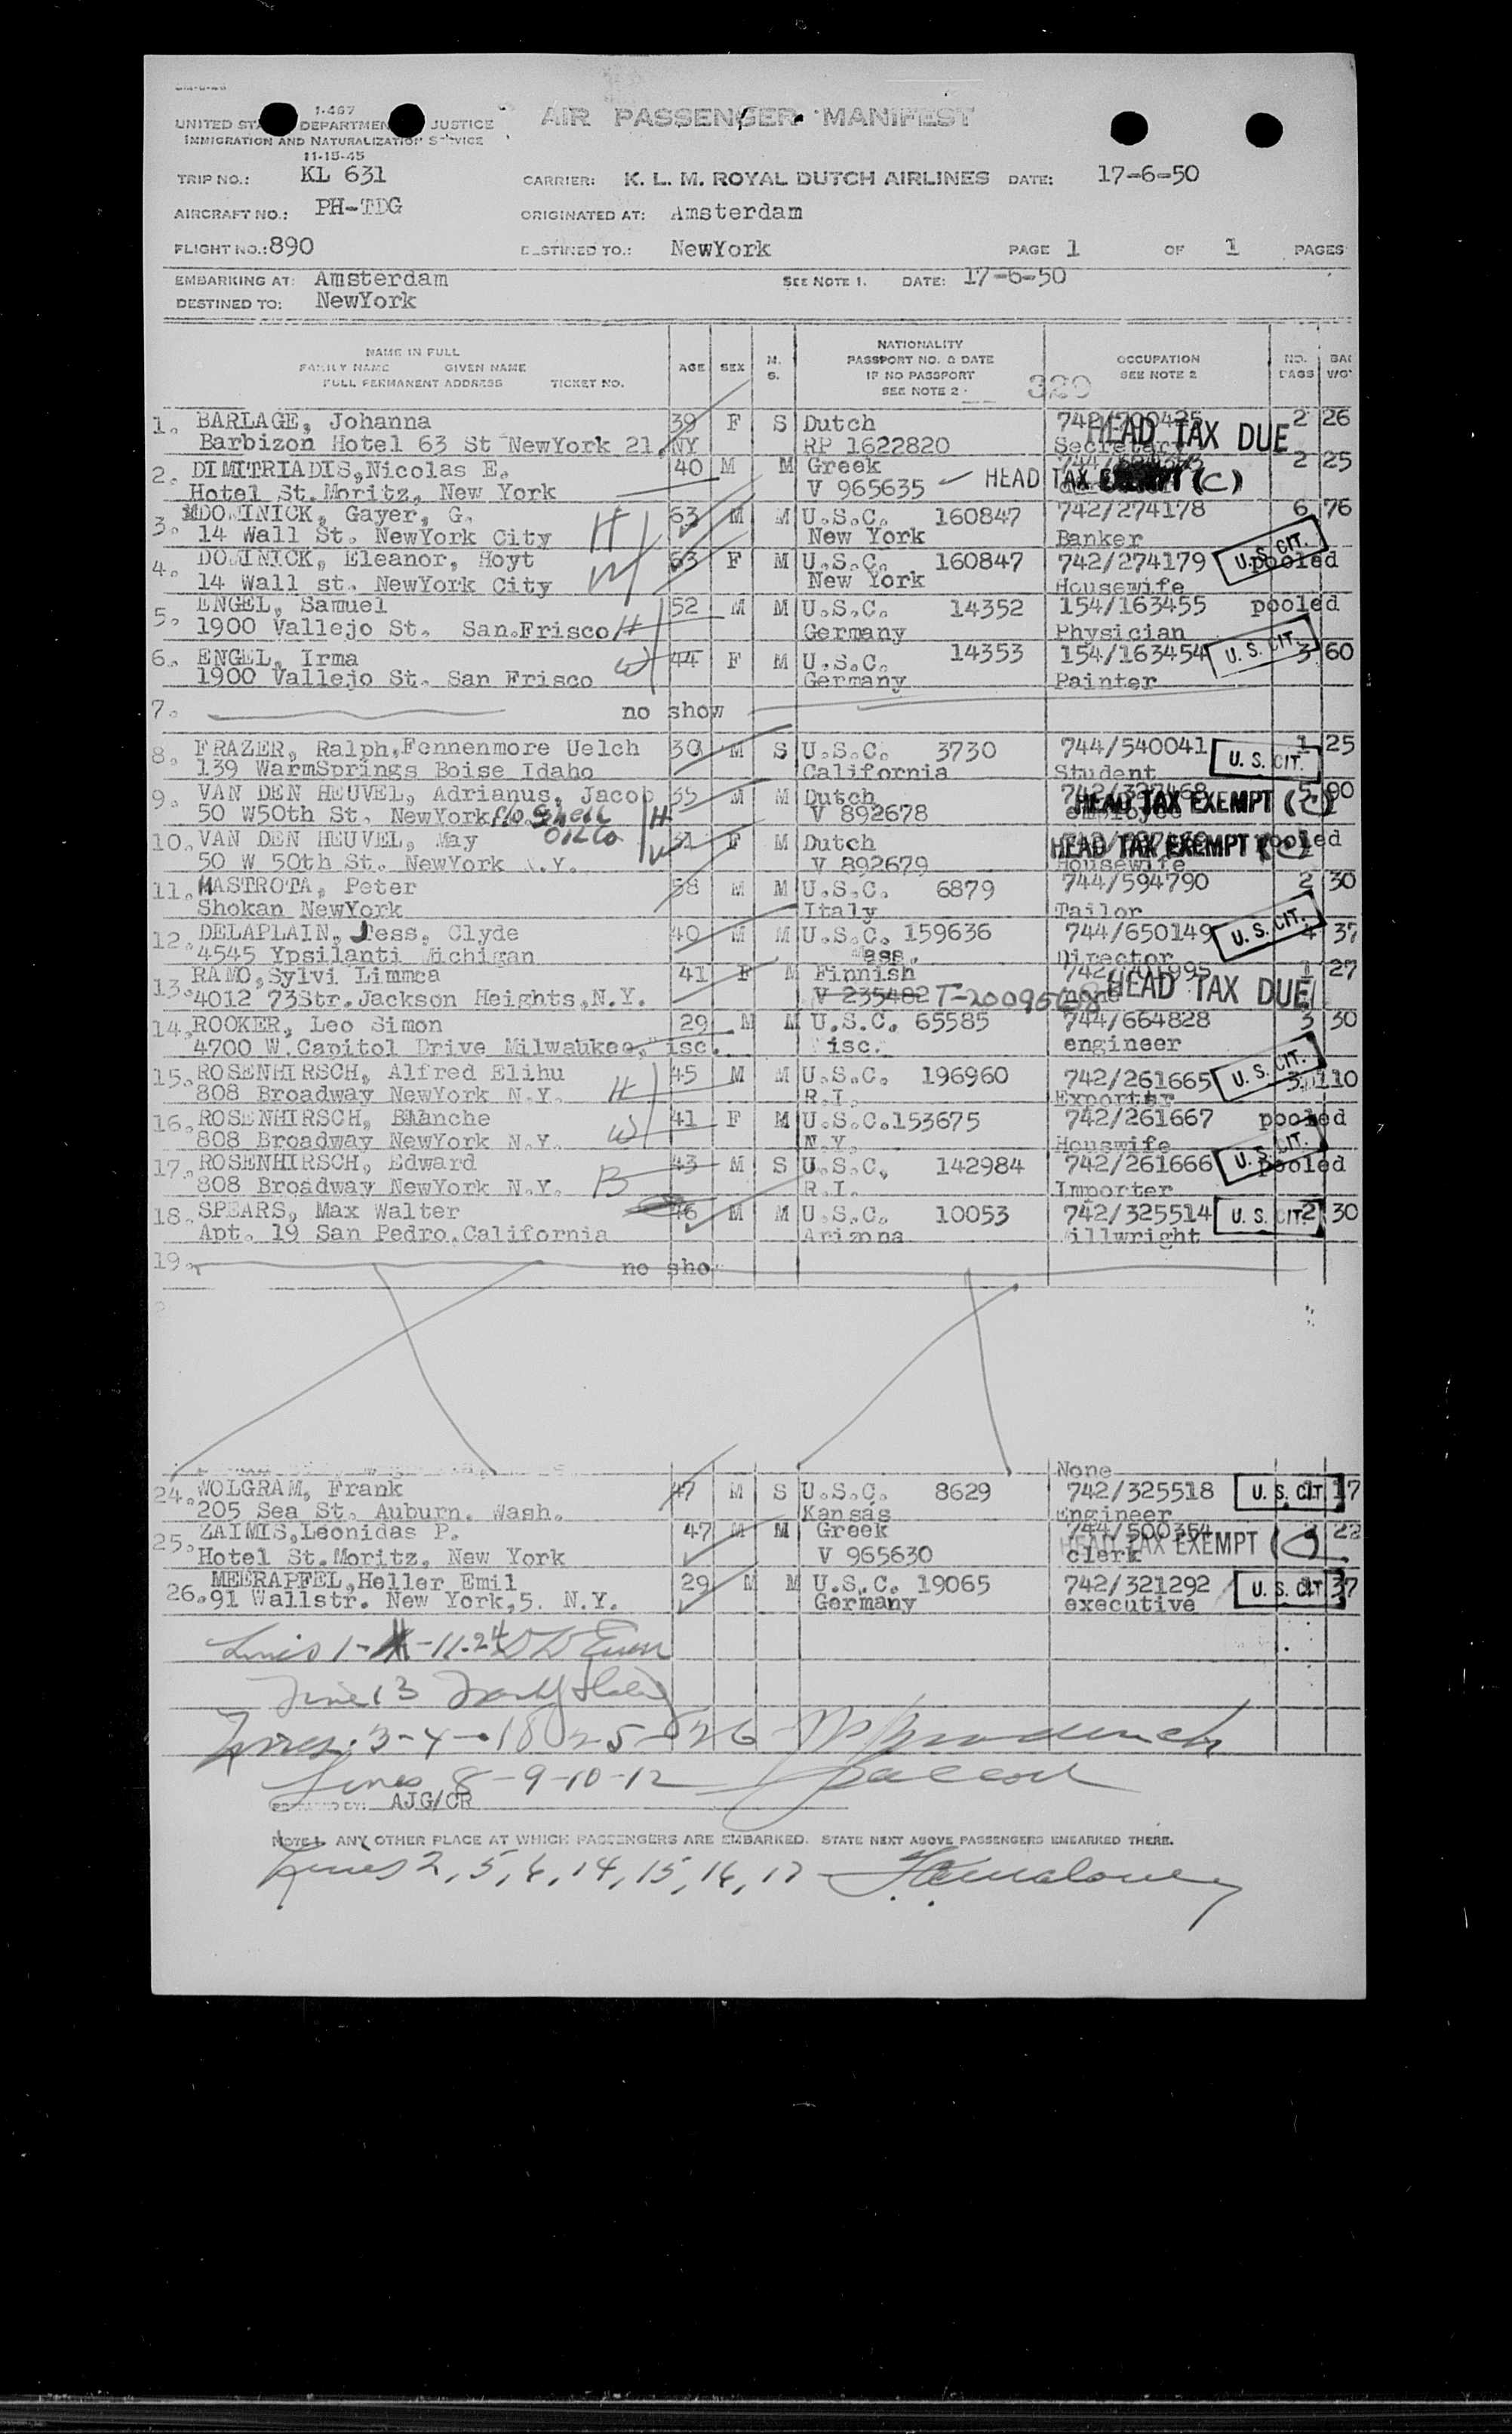 1-467
UNITED STA DEPARTMEN JUSTICE
IMMIGRATION AND NATURALIZATION S VICE
11-15-45
AIR PASSENGER MANIFEST
TRIP NO.: KL 631 CARRIER: K. L. M. ROYAL DUTCH AIRLINES DATE: 17-6-50
AIRCRAFT NO.: PH-TDG ORIGINATED AT: Amsterdam
FLIGHT NO.: 890 D STINED TO.: NewYork PAGE 1 OF 1 PAGES
EMBARKING AT: Amsterdam SEE NOTE 1. DATE: 17-6-50
DESTINED TO: NewYork
NAME IN FULL
FAMILY NAME GIVEN NAME
FULL PERMANENT ADDRESS TICKET NO.
AGE SEX M. S.
NATIONALITY
PASSPORT NO. & DATE
IF NO PASSPORT
SEE NOTE 2
320
OCCUPATION
SEE NOTE 2
NO. BAGS
BAG WGT
1. BARLAGE, Johanna 39 F S Dutch 742/700425 2 26
Barbizon Hotel 63 St NewYork 21, NY RP 1622820 Secretary HEAD TAX DUE
2. DIMITRIADIS,Nicolas E. 40 M M Greek 2 25
Hotel St.Moritz, New York V 965635 HEAD TAX (C)
3. DOMINICK, Gayer, G. 63 M M U.S.C. 160847 742/274178 6 76
14 Wall St. NewYork City H New York Banker
4. DOMINICK, Eleanor, Hoyt 63 F M U.S.C. 160847 742/274179 U.S. CIT. pooled
14 Wall st. NewYork City W New York Housewife
5. ENGEL, Samuel 52 M M U.S.C. 14352 154/163455 pooled
1900 Vallejo St. San.Frisco H Germany Physician
6. ENGEL, Irma W 44 F M U.S.C. 14353 154/163454 U. S. CIT. 3 60
1900 Vallejo St. San Frisco Germany Painter
7. no show
8. FRAZER, Ralph,Fennenmore Uelch 30 M S U.S.C. 3730 744/540041 1 25
139 WarmSprings Boise Idaho California Student U. S. CIT.
9. VAN DEN HEUVEL, Adrianus, Jacob 35 M M Dutch 742/327468 5 90
50 W50th St. NewYork c/o Shell Oil Co H V 892678 employee HEAD TAX EXEMPT (C)
10. VAN DEN HEUVEL, May W 31 F M Dutch HEAD TAX EXEMPT (C) pooled
50 W 50th St. NewYork N.Y. V 892679 Housewife
11. MASTROTA, Peter 58 M M U.S.C. 6879 744/594790 2 30
Shokan NewYork Italy Tailor
12. DELAPLAIN, Jess, Clyde 40 M M U.S.C. 159636 744/650149 U. S. CIT. 4 37
4545 Ypsilanti Michigan Mass. Director
13. RAMO,Sylvi Limmea 41 F M Finnish 742/701995 1 27
4012 73Str.Jackson Heights,N.Y. V 235482 none HEAD TAX DUE
14. ROOKER, Leo Simon 29 M M U.S.C. 65585 744/664828 3 30
4700 W.Capitol Drive Milwaukee, isc. isc. engineer
15. ROSENHIRSCH, Alfred Elihu 45 M M U.S.C. 196960 742/261665 U. S. CIT. 3 110
808 Broadway NewYork N.Y. H R.I. Exporter
16. ROSENHIRSCH, Blanche 41 F M U.S.C.153675 742/261667 pooled
808 Broadway NewYork N.Y. W N.Y. Houswife
17. ROSENHIRSCH, Edward 43 M S U.S.C. 142984 742/261666 U. S. CIT. pooled
808 Broadway NewYork N.Y. B R.I. Importer
18. SPEARS, Max Walter 46 M M U.S.C. 10053 742/325514 U. S. CIT. 2 30
Apt. 19 San Pedro.California Arizona illwright
19. no sho
None
24. WOLGRAM, Frank 47 M S U.S.C. 8629 742/325518 U. S. CIT 17
205 Sea St. Auburn. Wash. Kansas Engineer
25. ZAIMIS,Leonidas P. 47 M M Greek 744/500354 22
Hotel St.Moritz, New York V 965630 clerk HEAD TAX EXEMPT (C)
26. MEERAPFEL,Heller Emil 29 M M U.S.C. 19065 742/321292 U. S. CIT 37
91 Wallstr. New York,5. N.Y. Germany executive
Lines 1- -11-24
Line 13
Lines 3-4-18-25-26
Lines 8-9-10-12
AJG/CR
NOTE 1. ANY OTHER PLACE AT WHICH PASSENGERS ARE EMBARKED. STATE NEXT ABOVE PASSENGERS EMBARKED THERE.
Lines 2, 5, 6, 14, 15, 16, 17